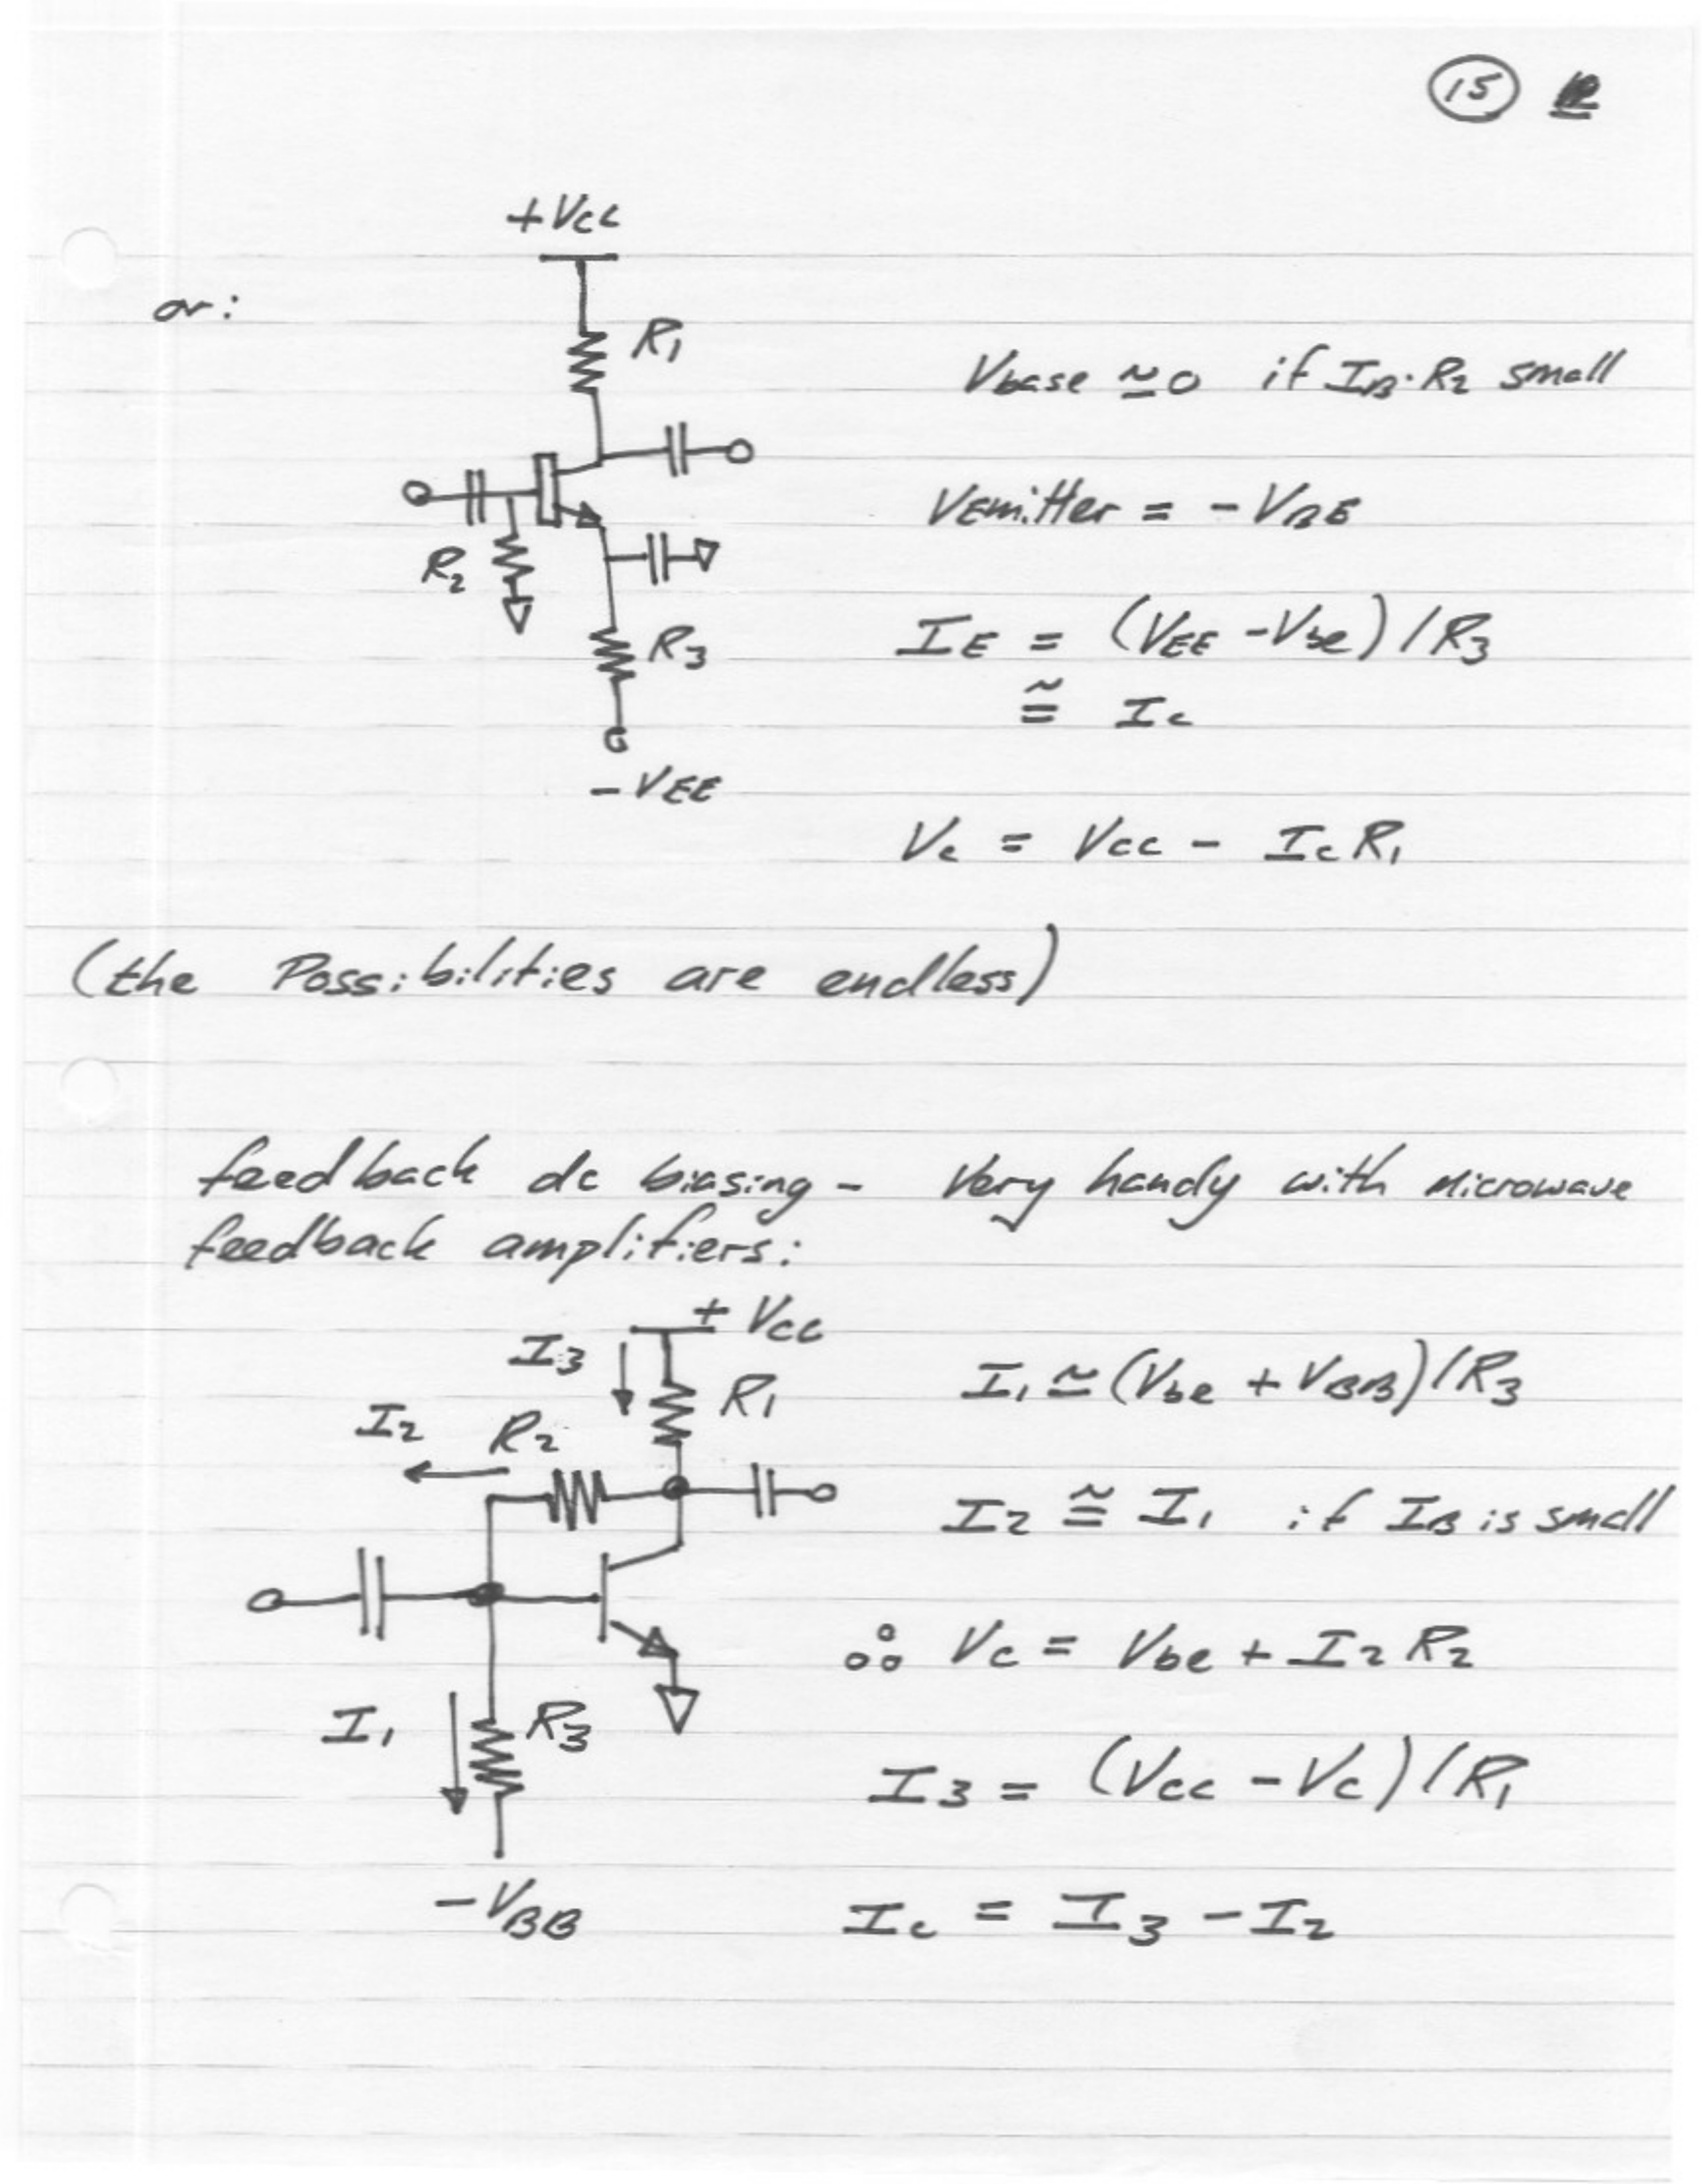 15
+Vcc
or:
R1
Vbase ≃ 0 if IB·R2 small
VEmitter = -VBE
R2
IE = (VEE - Vbe) / R3
R3
≅ Ic
-VEE
Vc = Vcc - Ic R1
(the Possibilities are endless)
feedback dc biasing - Very handy with microwave
feedback amplifiers:
+ Vcc
I3
R1
I1 ≃ (Vbe + VBB) / R3
I2
R2
I2 ≅ I1 if IB is small
∴ Vc = Vbe + I2 R2
I1
R3
I3 = (Vcc - Vc) / R1
-VBB
Ic = I3 - I2